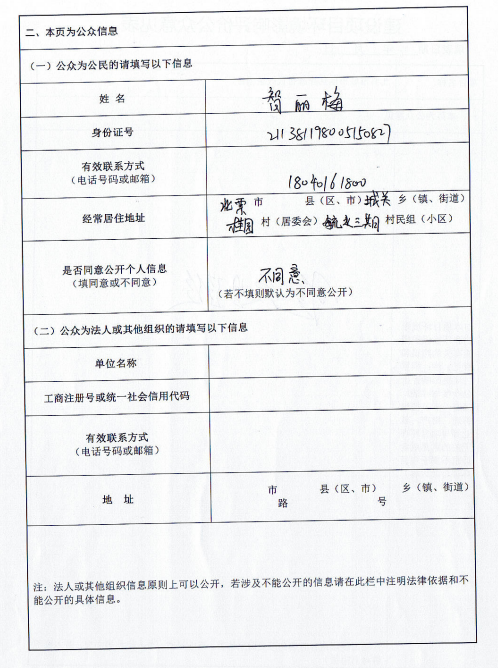 二、本页为公众信息
（一）公众为公民的请填写以下信息
姓 名 智丽梅
身份证号 211381198005150827
有效联系方式
（电话号码或邮箱） 18040161800
北票 市 县（区、市）城关 乡（镇、街道）
经常居住地址 桂园 村（居委会） 三期 村民组（小区）
是否同意公开个人信息 不同意
（填同意或不同意） （若不填则默认为不同意公开）
（二）公众为法人或其他组织的请填写以下信息
单位名称
工商注册号或统一社会信用代码
有效联系方式
（电话号码或邮箱）
市 县（区、市） 乡（镇、街道）
地 址 路 号
注：法人或其他组织信息原则上可以公开，若涉及不能公开的信息请在此栏中注明法律依据和不
能公开的具体信息。